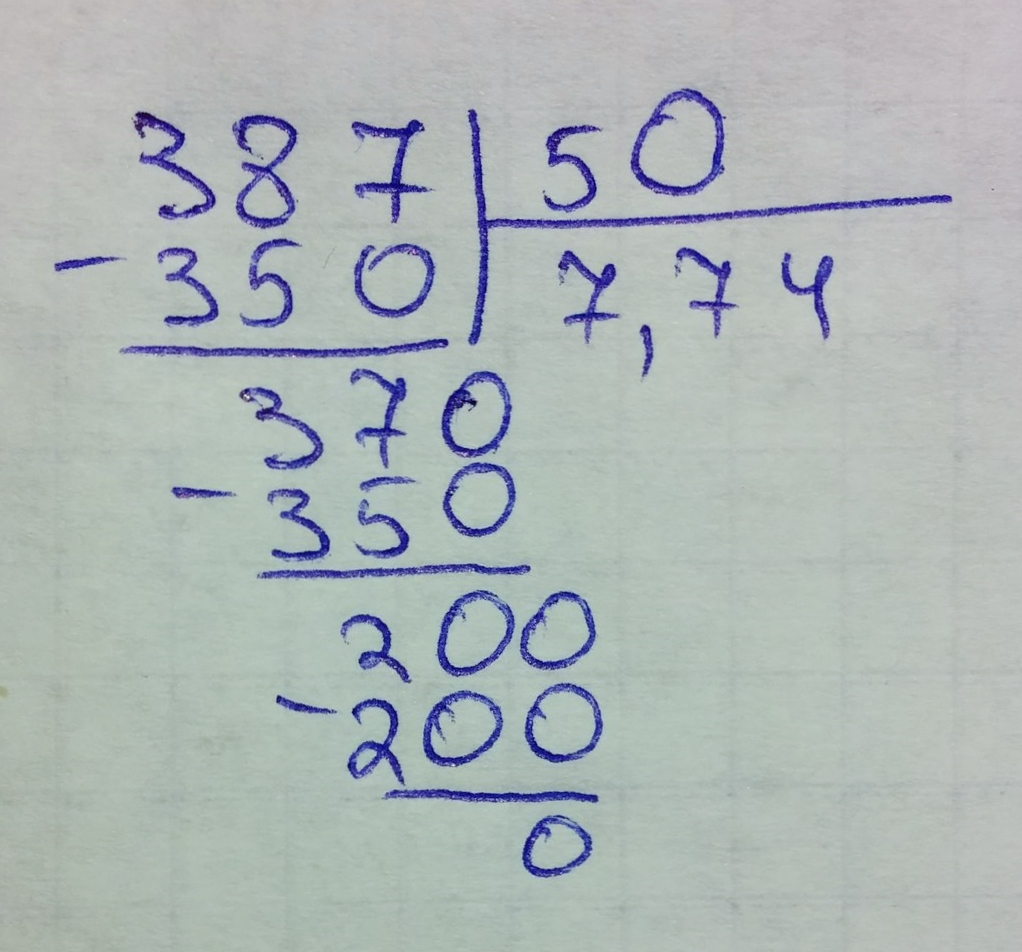 387 50
- 350 7,74
370
- 350
200
- 200
0